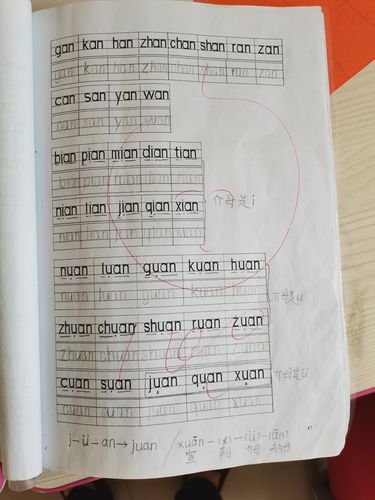 gan kan han zhan chan shan ran zan
gan kan han zhan chan shan ran zan
can san yan wan
can san yan wan
bian pian mian dian tian
bian pian mian dian tian
nian lian jian qian xian 介母是i
nian lian jian qian xian
nuan luan guan kuan huan
nuan luan guan kuan huan 介母是u
zhuan chuan shuan ruan zuan
zhuan chuan shuan ruan zuan
cuan suan juan quan xuan 介母是ü
cuan suan juan quan xuan
j-ü-an→juan / xuān-(x)-(ü)-(ān)
宣